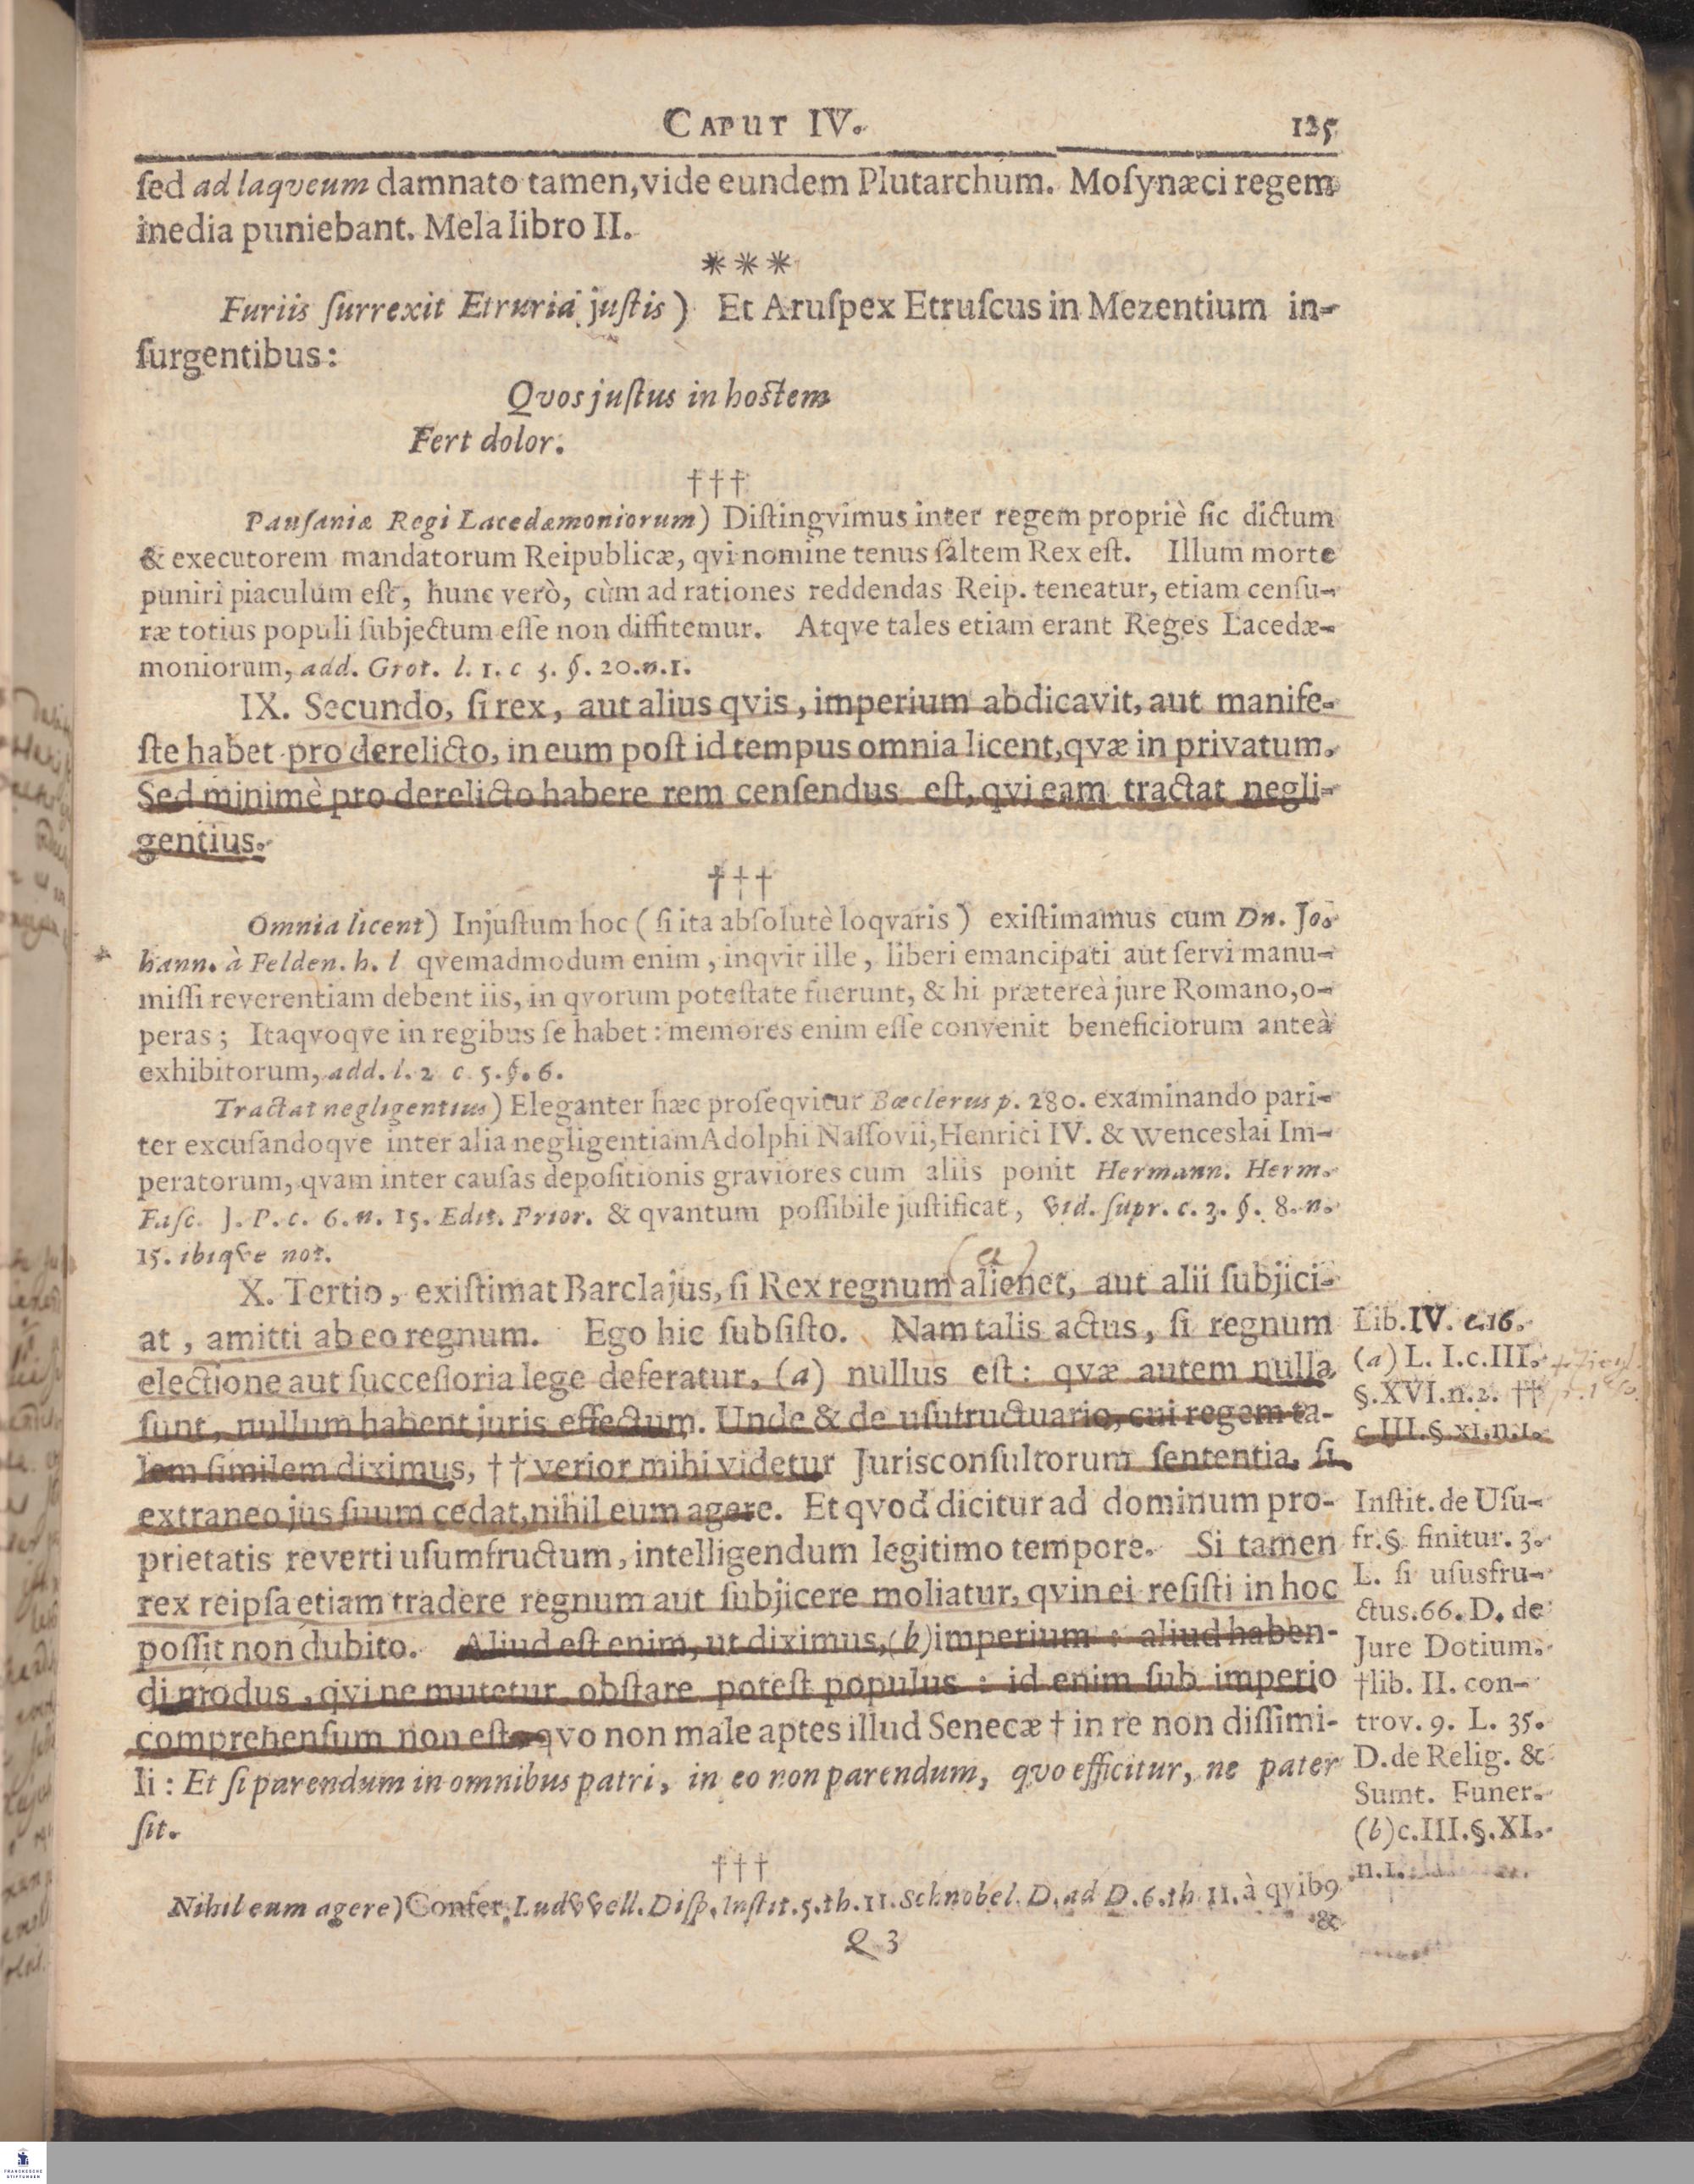 CAPUT IV. 125
ſed ad laqveum damnato tamen, vide eundem Plutarchum. Moſynæci regem
inedia puniebant. Mela libro II.
***
Furiis ſurrexit Etruria juſtis) Et Aruſpex Etruſcus in Mezentium in-
ſurgentibus:
Qvos juſtus in hoſtem
Fert dolor.
†††
Pauſaniæ Regi Lacedæmoniorum) Diſtingvimus inter regem propriè ſic dictum
& executorem mandatorum Reipublicæ, qvi nomine tenus ſaltem Rex eſt. Illum morte
puniri piaculum eſt, hunc verò, cùm ad rationes reddendas Reip. teneatur, etiam cenſu-
ræ totius populi ſubjectum eſſe non diffitemur. Atqve tales etiam erant Reges Lacedæ-
moniorum, add. Grot. l. 1. c 3. §. 20. n. 1.
IX. Secundo, ſi rex, aut alius qvis, imperium abdicavit, aut manife-
ſte habet pro derelicto, in eum poſt id tempus omnia licent, qvæ in privatum.
Sed minimè pro derelicto habere rem cenſendus eſt, qvi eam tractat negli-
gentius.
†††
Omnia licent) Injuſtum hoc (ſi ita abſolutè loqvaris) exiſtimamus cum Dn. Jo-
hann. à Felden. h. l qvemadmodum enim, inqvit ille, liberi emancipati aut ſervi manu-
miſſi reverentiam debent iis, in qvorum poteſtate fuerunt, & hi prætereà jure Romano, o-
peras; Itaqvoqve in regibus ſe habet: memores enim eſſe convenit beneficiorum anteà
exhibitorum, add. l. 2 c. 5. §. 6.
Tractat negligentius) Eleganter hæc proſeqvitur Bœclerus p. 280. examinando pari-
ter excuſandoqve inter alia negligentiam Adolphi Naſſovii, Henrici IV. & Wenceslai Im-
peratorum, qvam inter cauſas depoſitionis graviores cum aliis ponit Hermann. Herm.
Faſc. J. P. c. 6. n. 15. Edit. Prior. & qvantum poſſibile juſtificat, vid. ſupr. c. 3. §. 8. n.
15. ibiqve not.
(a)
X. Tertio, exiſtimat Barclajus, ſi Rex regnum alienet, aut alii ſubjici-
at, amitti ab eo regnum. Ego hic ſubſiſto. Nam talis actus, ſi regnum
electione aut ſucceſſoria lege deferatur, (a) nullus eſt: qvæ autem nulla
ſunt, nullum habent juris effectum. Unde & de uſufructuario, cui regem ta-
lem ſimilem diximus, †† verior mihi videtur Jurisconſultorum ſententia, ſi
extraneo jus ſuum cedat, nihil eum agere. Et qvod dicitur ad dominum pro-
prietatis reverti uſumfructum, intelligendum legitimo tempore. Si tamen
rex reipſa etiam tradere regnum aut ſubjicere moliatur, qvin ei reſiſti in hoc
poſſit non dubito. Aliud eſt enim, ut diximus, (b) imperium: aliud haben-
di modus, qvi ne mutetur obſtare poteſt populus: id enim ſub imperio
comprehenſum non eſt, qvo non male aptes illud Senecæ † in re non diſſimi-
li: Et ſi parendum in omnibus patri, in eo non parendum, qvo efficitur, ne pater
ſit.
Lib. IV. c. 16.
(a) L. I. c. III.
§. XVI. n. 2. ††
c. III. §. XI. n. 1.
Inſtit. de Uſu-
fr. § finitur. 3.
L. ſi uſusfru-
ctus. 66. D. de
Jure Dotium.
†lib. II. con-
trov. 9. L. 35.
D. de Relig. &
Sumt. Funer.
(b) c. III. §. XI.
n. 1.
†††
Nihil eum agere) Confer. Ludvvell. Diſp. Inſtit. 5. th. 11. Schnobel. D. ad D. 6. th. 11. à qvib9
&
Q 3
FRANCKESCHE
STIFTUNGEN